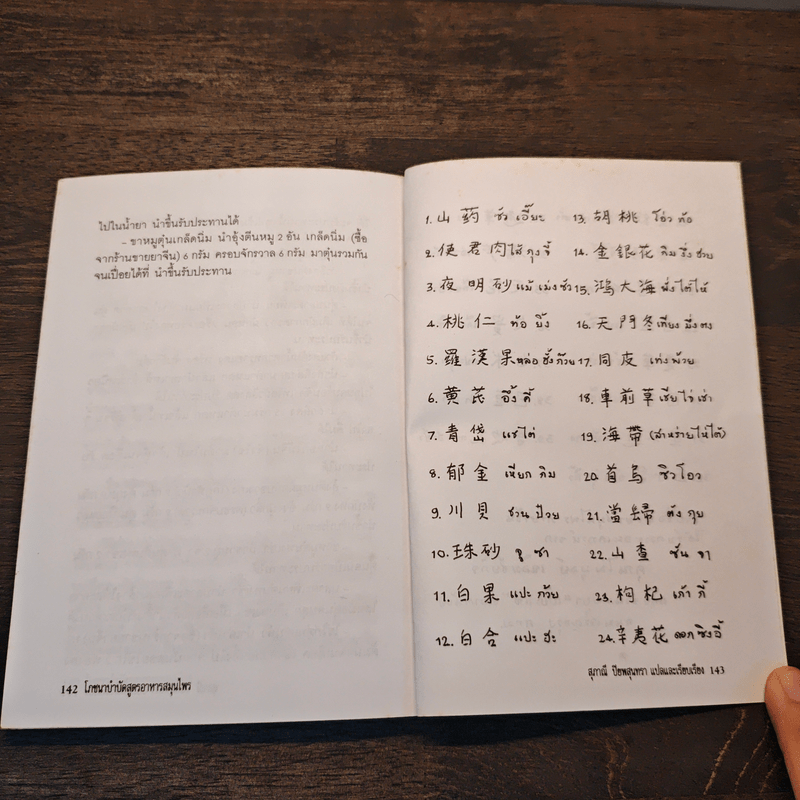 ไปในน้ำยา นำขึ้นรับประทานได้
- ขาหมูตุ๋นเกล็ดนิ่ม นำอุ้งตีนหมู 2 อัน เกล็ดนิ่ม (ซื้อ
จากร้านขายยาจีน) 6 กรัม ครอบจักรวาล 6 กรัม มาตุ๋นรวมกัน
จนเปื่อยได้ที่ นำขึ้นรับประทาน
142 โภชนาบำบัดสูตรอาหารสมุนไพร
1. 山 药 ซัว เอี๊ยะ
2. 使 君 肉 ไส้ กุง จี้
3. 夜 明 砂 แม้ เม่ง ซัว
4. 桃 仁 ท้อ ยิ้ง
5. 羅 漢 果 หล่อ ฮั้ง ก้วย
6. 黄 芪 อึ้ง คี้
7. 青 岱 แช ไต่
8. 郁 金 เหียก กิม
9. 川 貝 ชวน ป้วย
10. 珠 砂 จู ซา
11. 白 果 แปะ ก้วย
12. 白 合 แปะ ฮะ
13. 胡 桃 โอ่ว ท้อ
14. 金 銀 花 กิม งึ่ง ฮวย
15. 鴻 大 海 พั่ง ไต้ ไห้
16. 天 門 冬 เทียง มึ่ง ตง
17. 同 皮 เท่ง พ้วย
18. 車 前 草 เชีย ไจ่ เช่า
19. 海 帶 (สาหร่ายไห้ไต้)
20. 首 烏 ซิว โอว
21. 當 歸 ตัง กุย
22. 山 查 ซัน จา
23. 枸 杞 เก๋า กี้
24. 辛 夷 花 ดอก ซิง อี๊
สุภาณี ปิยพสุนทรา แปลและเรียบเรียง 143